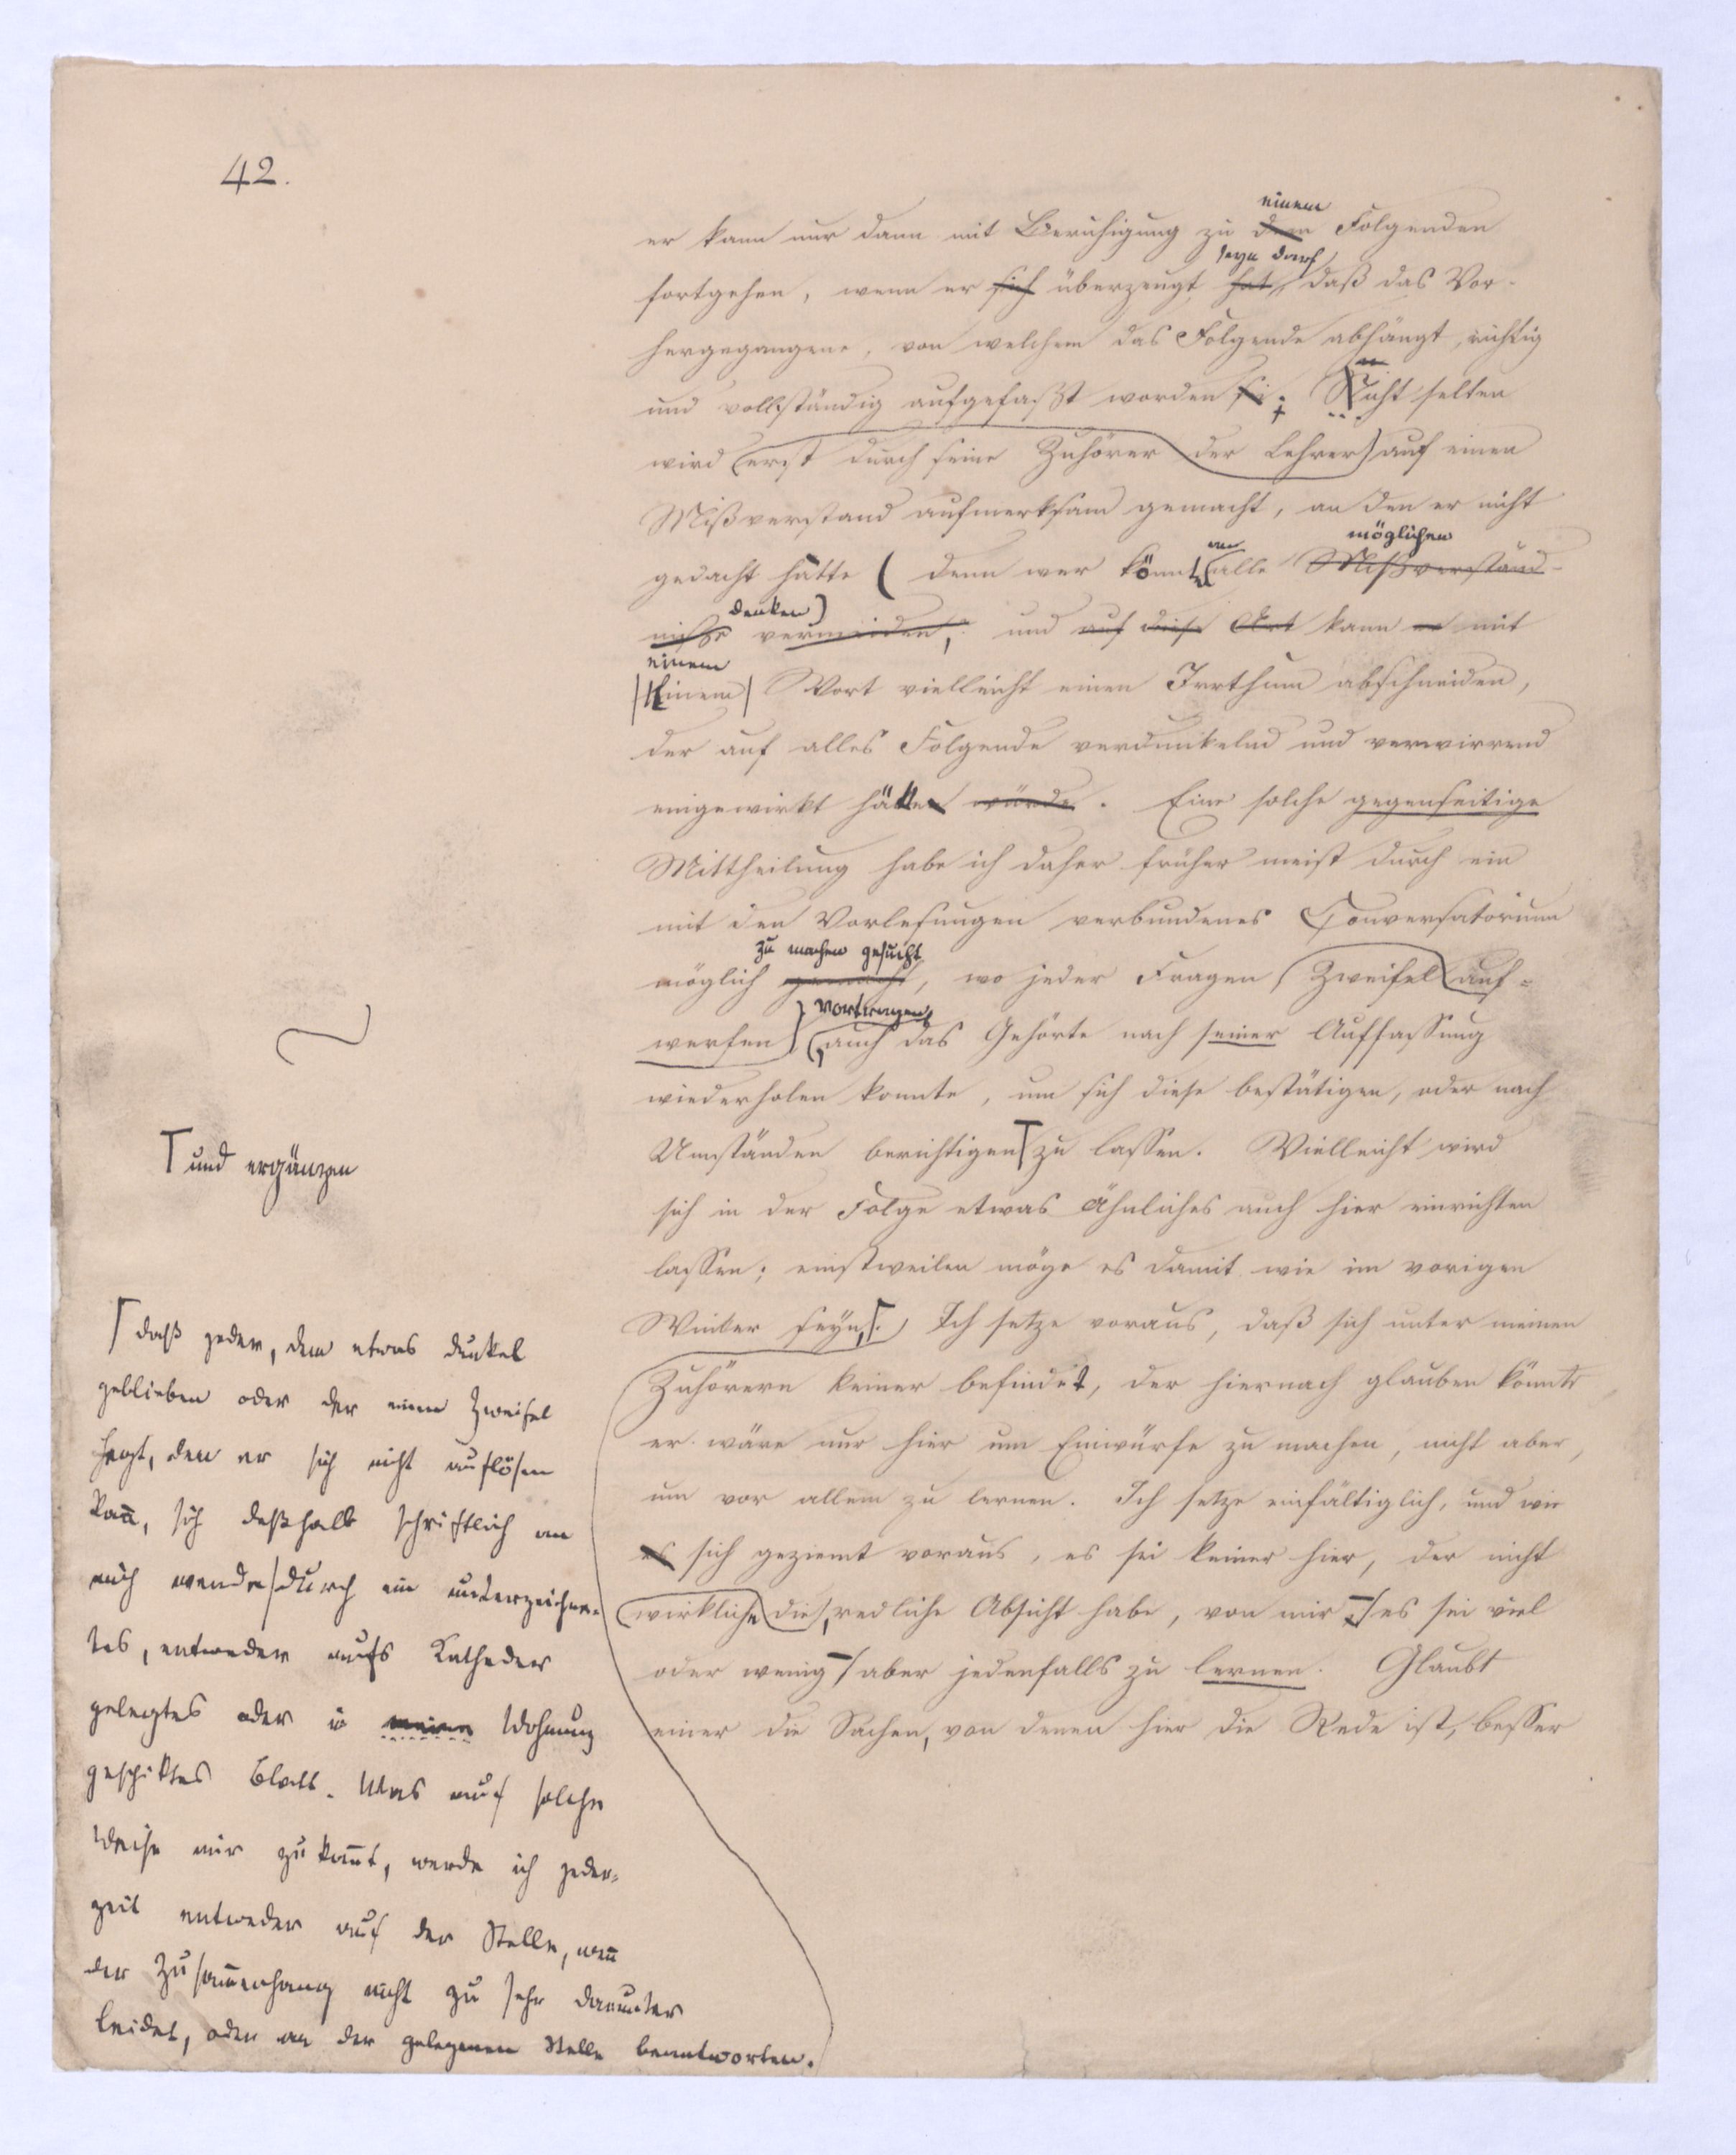 42.
einem
er kann nur dann mit Beruhigung zu dem Folgenden
seyn darf
fortgehen, wenn er sich überzeugt hat, daß das Vor-
hergegangene, von welchem das Folgende abhängt, richtig
und vollständig aufgefaßt worden sei. Nicht selten
wird erst durch seine Zuhörer der Lehrer auf einen
Mißverstand aufmerksam gemacht, an den er nicht
an möglichen
gedacht hätte (denn wer könnte alle Mißverständ-
denken)
nisse vermeiden, und auf diese Art kann er mit
einem
Einem Wort vielleicht einen Irrthum abschneiden,
der auf alles Folgende verdunkelnd und verwirrend
eingewirkt hätte würde. Eine solche gegenseitige
Mittheilung habe ich daher früher meist durch ein
mit den Vorlesungen verbundenes Conversatorium
zu machen gesucht
möglich gemacht, wo jeder Fragen Zweifel auf-
vortragen
werfen auch das Gehörte nach seiner Auffassung
wiederholen konnte, um sich diese bestätigen, oder nach
Umständen berichtigen zu lassen. Vielleicht wird
sich in der Folge etwas Ähnliches auch hier einrichten
lassen; einstweilen möge es damit wie im vorigen
Winter seyn. Ich setze voraus, daß sich unter meinen
Zuhörern keiner befindet, der hiernach glauben könnte
er wäre nur hier um Einwürfe zu machen, nicht aber,
um vor allem zu lernen. Ich setze einfältiglich, und wie
es sich geziemt voraus, es sei keiner hier, der nicht
wirkliche die, redliche Absicht habe, von mir - es sei viel
oder wenig - aber jedenfalls zu lernen. Glaubt
einer die Sachen, von denen hier die Rede ist, besser
und ergänzen
daß jeder, dem etwas dunkel
geblieben oder der einen Zweifel
hegt, den er sich nicht auflösen
kan̄, sich deßhalb schriftlich an
mich wende durch ein unterzeichne-
tes, entweder aufs Katheder
gelegtes oder in meine Wohnung
geschiktes Blatt. Was auf solche
Weise mir zukom̄t, werde ich jeder-
zeit entweder auf der Stelle, wen̄
der Zusam̄enhang nicht zu sehr darunter
leidet, oder an der gelegenen Stelle beantworten.